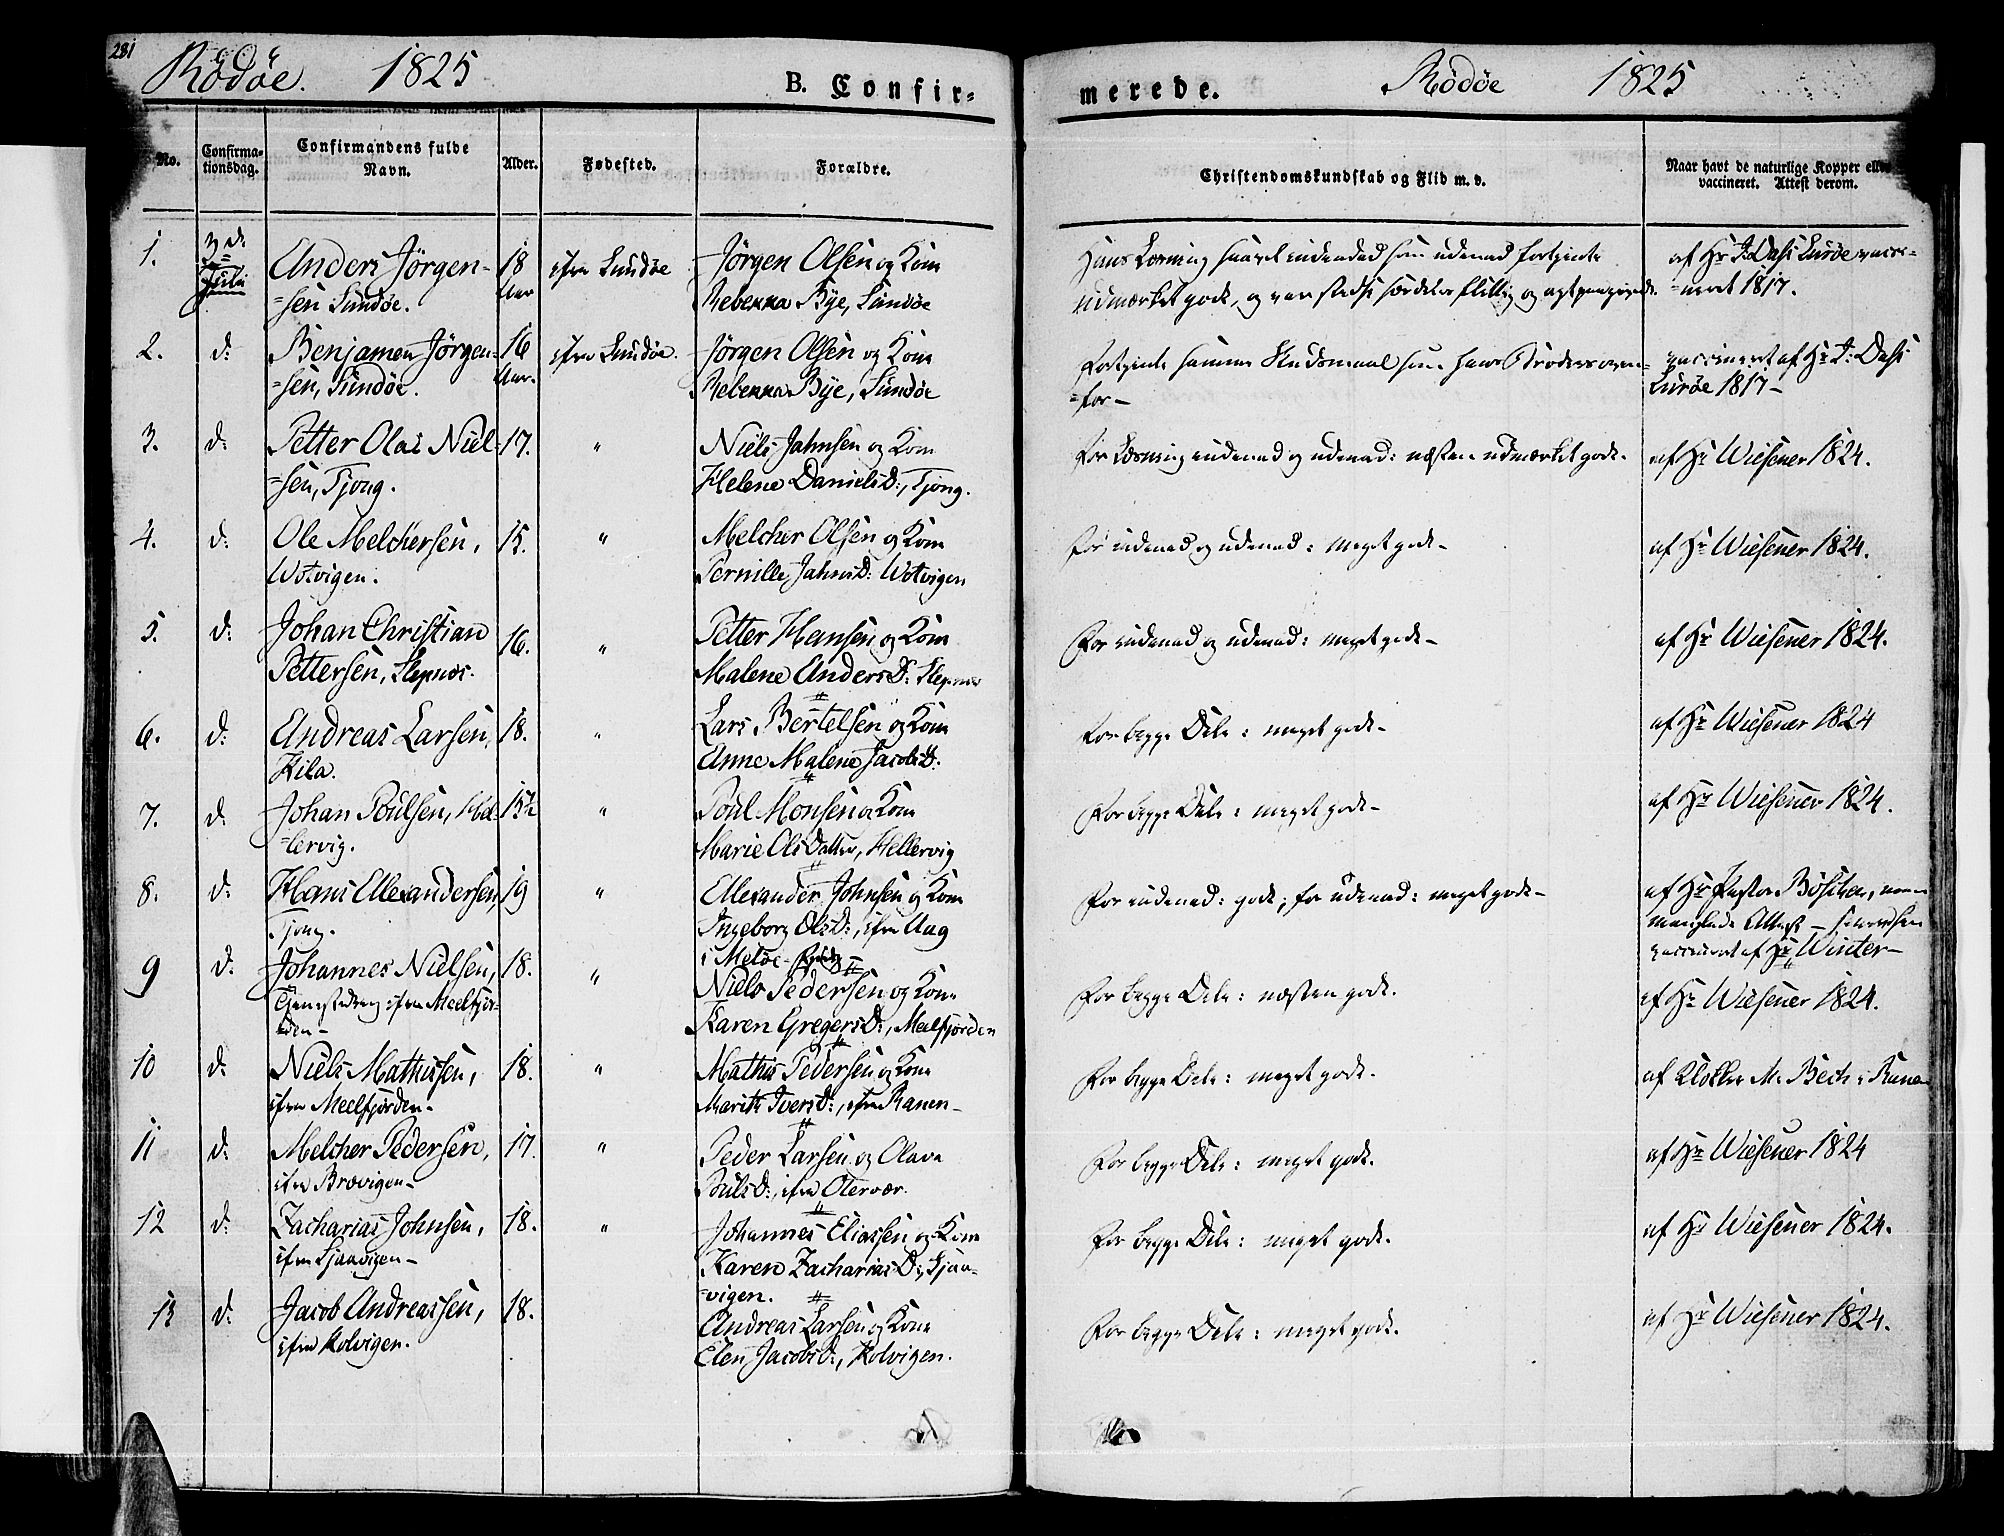 281
Rødøe. 1825
B. Confir-
No.
Confirma-
tionsdag.
Confirmandens fulde
Navn.
Alder.
Fødested.
Forældre.
1. 3die Julii Anders Jörgen- 18 ifra Sundøe Jörgen Olsen og Kone
=sen Sundøe. Aar Rebekka Bye, Sundøe
2. d: Benjamen Jörgen- 16 ifra Sundøe. Jörgen Olsen og Kone
=sen, Sundøe. Aar. Rebekka Bye, Sundøe
3. d: Petter Olai Niel- 17. " Niels Jahnsen og Kone
=sen, Tjong. Helene Daniels D:, Tjong.
4. d: Ole Melchersen, 15. " Melcher Olsen og Kone
Wotvigen. Pernille Jahns D: Wotvigen
5. d: Johan Christian 16. " Petter Hansen og Kone
Pettersen, Slepnes. Malene Anders D: Slepnes
6. d: Andreas Larsen, 18. " Lars Bertelsen og Kone
Kila. Anne Malene Jacobs D:
7. d: Johan Poulsen, Hel- 15½ " Poul Monsen og Kone
=lervig. Marie Ols Datter, Hellervig
8. d: Hans Ellexandersen, 19 " Ellexander Johnsen og Kone
Tjong. Ingeborg Ols D:, ifra Aag
i Meløe
9 d: Johannes Nielsen, 18. " Niels Pedersen og Kone
ifra Meelfjor-
den- Karen Gregers D:, Meelfjorden
10 d: Niels Mathissen, 18. " Mathis Pedersen og Kone
ifra Meelfjorden- Marith Ivers D:, ifra Ranen-
11 d: Melcher Pedersen, 17. " Peder Larsen og Olava
ifra Brævigen- Pouls D:, ifra Otervær.
12 d: Zacharias Johnsen, 18. " Johannes Eliassen og Kone
ifra Sjaavigen- Karen Zacharias D:, Sjaa-
=vigen.
13 d: Jacob Andreassen, 18. Andreas Larsen og Kone
ifra Kolvigen. Elen Jacobs D:, Kolvigen.
merede. Rødøe 1825
Christendomskundskab og Flid m. v.
Naar havt de naturlige Kopper eller
vaccineret. Attest derom.
Hans Læsning saavel indenad som udenad fortjente af Hr J: Dass Lurøe vacci-
udmærket godt, og var stedse særdeles flittig og agtpaagivende. =neret 1817.
Fortjente samme Skudsmaal som hans Broder oven- vaccineret af Hr J: Dass
=for- Lurøe 1817-
For Læsning indenad og udenad: næsten udmærket godt. af Hr Wiesener 1824.
For indenad og udenad: meget godt- af Hr Wiesener 1824.
For indenad og udenad: meget godt- af Hr Wiesener 1824.
For begge Dele: meget godt- af Hr Wiesener 1824
For begge Dele: meget godt- af Hr Wiesener 1824.
For indenad: godt; for udenad: meget godt- af Hr Pastor
manglede Attest -
vaccineret af Hr Winter-
For begge Dele: næsten godt. af Hr Wiesener 1824.
For begge Dele: meget godt. af Klokker M: Bech i Ranen
For begge Dele: meget godt. af Hr Wiesener 1824
For begge Dele: meget godt. af Hr Wiesener 1824.
For begge Dele: meget godt. af Hr Wiesener 1824.